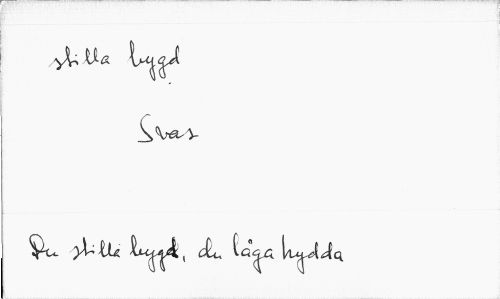 stilla bygd
Svar
Du stilla bygd, du låga hydda